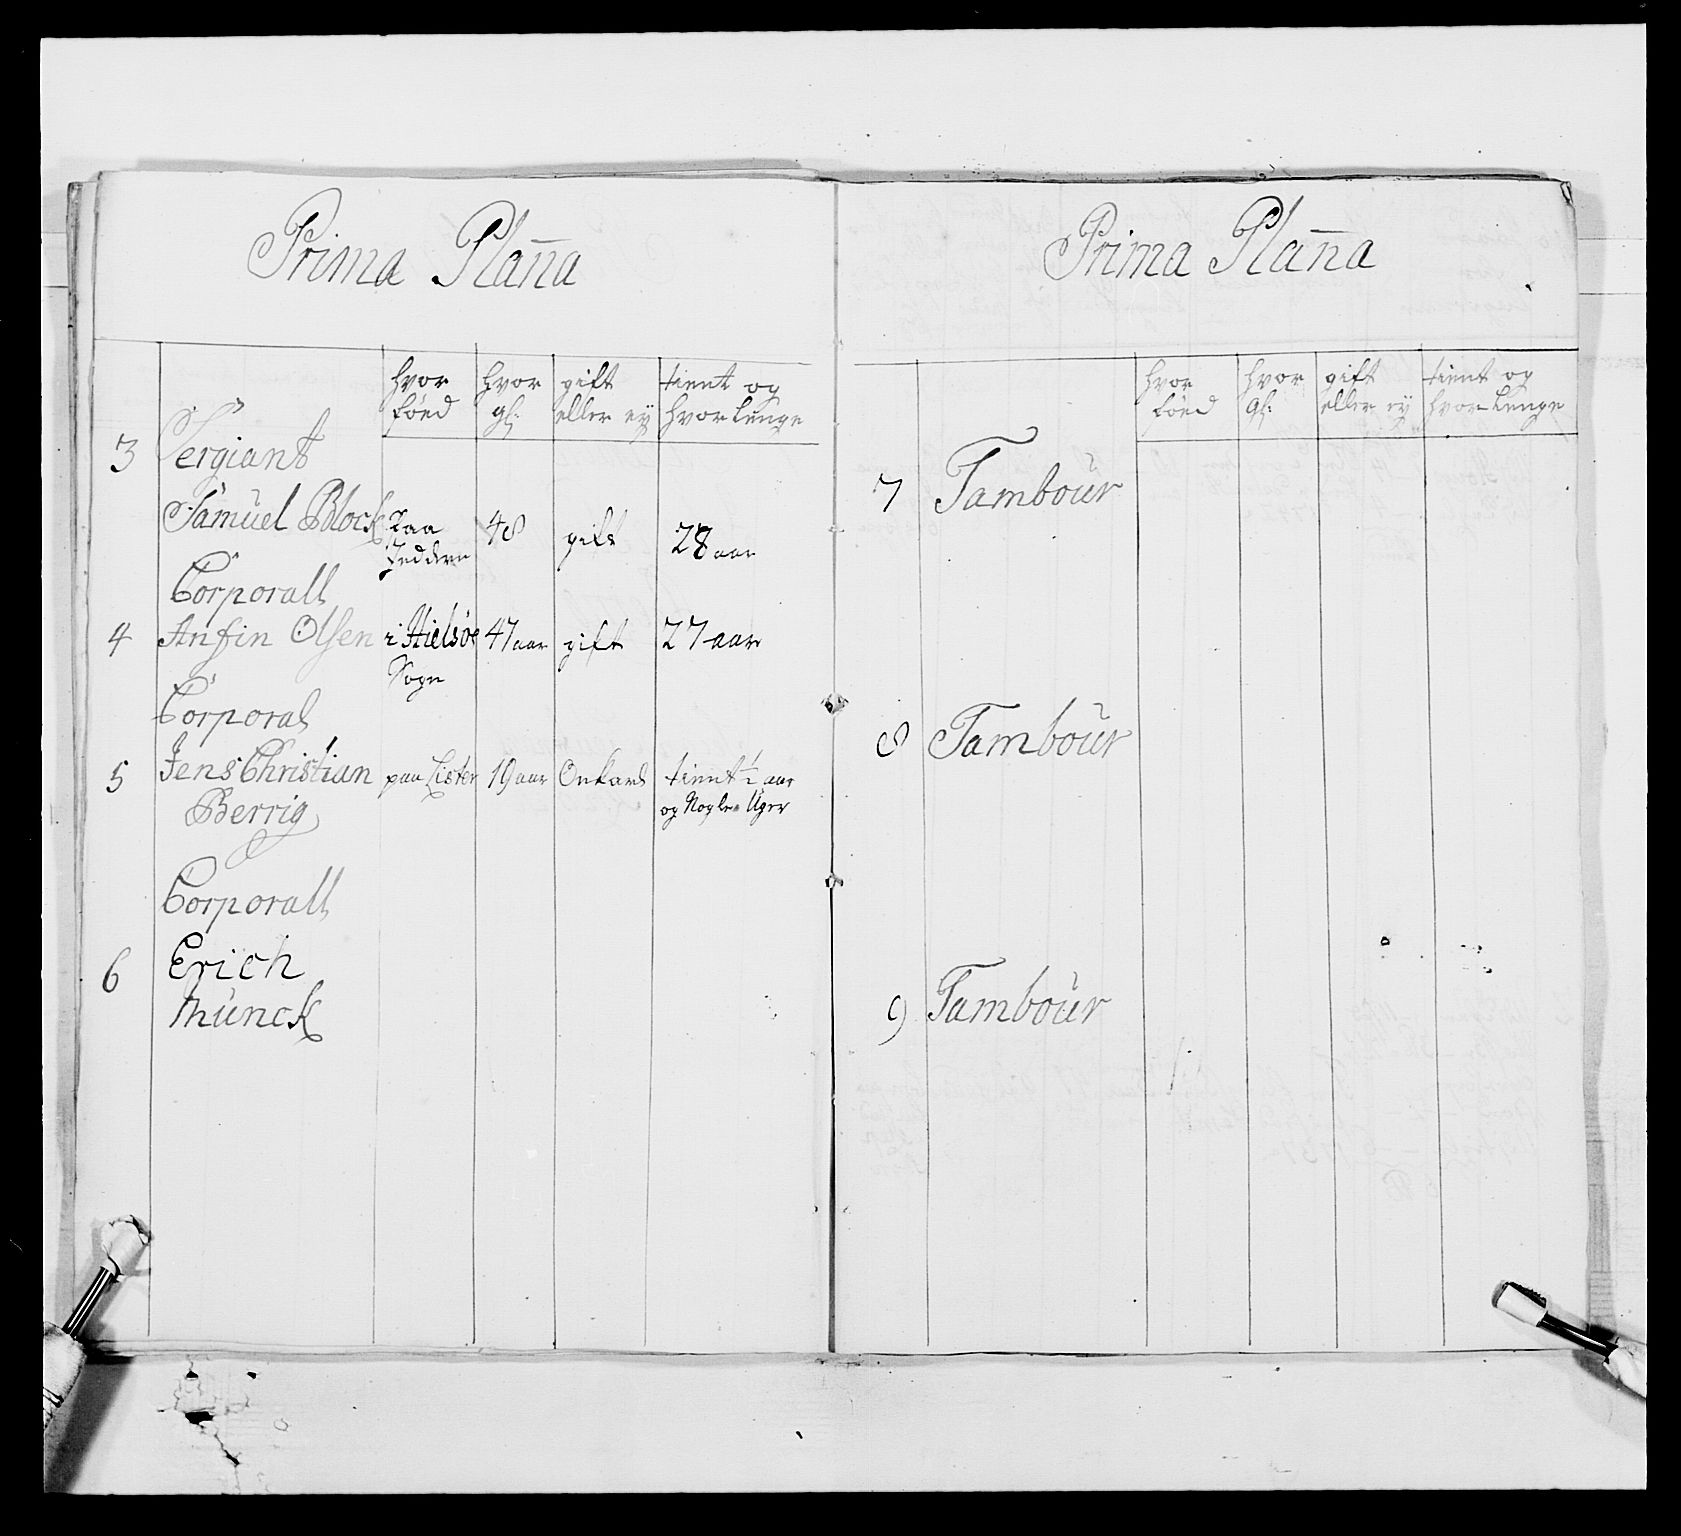 Prima Plan̄a
hvor föed
hvor gl:
gift eller ey
tient og hvor Lenge
3 Sergiant
Samuel Block Paa Jedderen 48 gift 28 aar
Corporall
4 Anfin Olsen i Hielsöe Sogn 47 aar gift 27 aar
Corporal
5 Jens Christian Berrig paa Lister 19 aar Onkarl tient ½ aar og Nogle Uger
Corporall
6 Erich
Munck
Prima Plan̄a
hvor föed
hvor gl:
gift eller ey
tient og hvor Lenge
7 Tambour
8 Tambour
9 Tambour